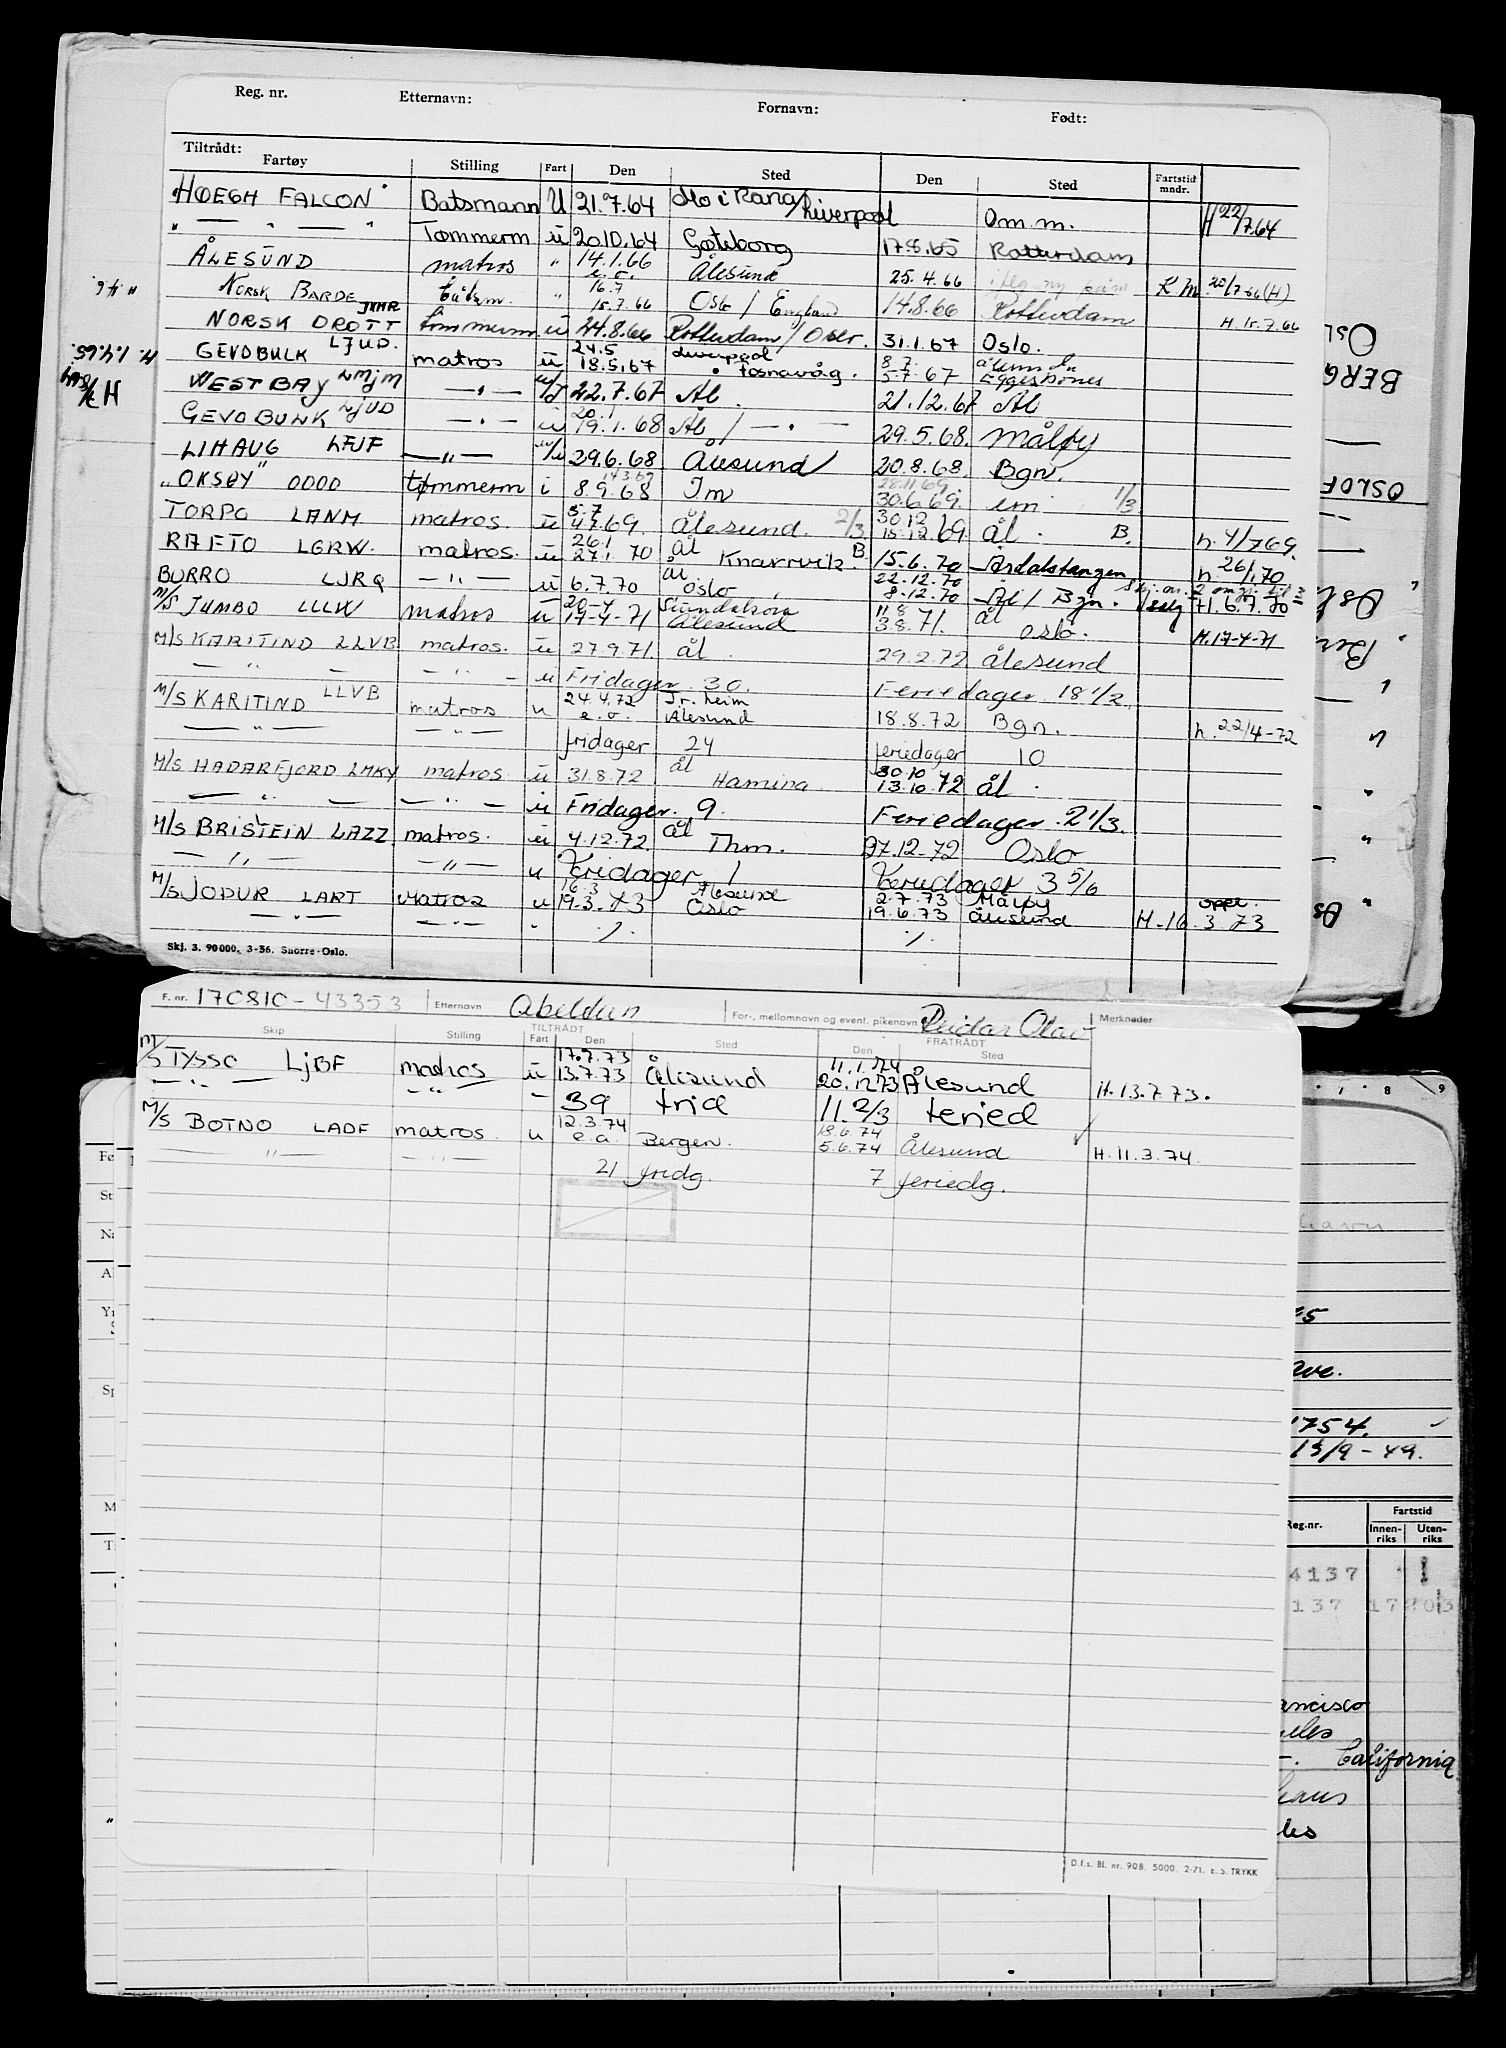 Reg. nr. Etternavn: Fornavn: Født:
Tiltrådt:
Fartøy Stilling Fart Den Sted Den Sted Fartstid mndr.
"HØEGH FALCON" Batsmann U 21.7.64 Mo i Rana/Liverpool Om.m. H 22/7.64
" — " — " Tømmerm ü 20.10.64 Gøteborg 17.8.65 Rotterdam
ÅLESUND matros " 14.1.66 e.o. Ålesund 25.4.66 K M 20/7-66 (H)
NORSK BARDE JXHR båtsm. " 16.7 15.7.66 Oslo / England 14.8.66 Rotterdam H. 15.7.66
NORSK DROTT tømmerm ü 24.8.66 Rotterdam / Oslo. 31.1.67 Oslo.
GEVOBULK LJUD. matros ü 24.5 18.5.67 Liverpool Fosnavåg. 8.7. 5.7.67 Eggesbønes
WESTBAY LMJM — " — 22.7.67 Ål. 21.12.67 Ål
GEVOBULK LJUD — " — ü 20.1 19.1.68 Ål / — " — 29.5.68. Måløy
LIHAUG LFJF — " — 29.6.68 Ålesund 20.8.68. Bgn.
"OKSØY" OOOO tømmerm i 8.9.68 Im 28.11.69 30.6.69. im 1/3
TORPO LANM matros. ü 5.7 4.7.69. Ålesund. 2/3 30.12 15.12.69 ål. B. h. 4/769.
RAFTO LGRW. matros. ü 26.1 27.1.70 ål Knarrvik. B. 15.6.70 Årdalstangen h. 26/1.70
BURRO LJRQ — " — ü 6.7.70 ål oslo 22.12.70 8.12.70 Ål / Bgn. H. 6.7.70
M/S JUMBO LLLW matros ü 20-4 17-4-71 Sundalsøra Ålesund 11.8 3.8.71. ål oslo. H. 17-4-71
M/S KARITIND LLVB matros. ü 27.9.71. ål. 29.2.72 Ålesund
— " — — " — u Fridager. 30. Feriedager. 18 1/2
M/S KARITIND LLVB matros u 24.4.72 e.o. Tr.heim Ålesund 18.8.72 Bgn. h. 22/4-72
— " — — " — fridager 24 feriedager 10
M/S HADARFJORD LMKY matros ü 31.8.72 ål Hamina 30.10 13.10.72 ål.
— " — — " — ü Fridager. 9. Feriedager. 2 1/3.
M/S BRISTEIN LAZZ matros. u 4.12.72 ål Thm. 27.12.72 Oslo
— " — — " — u Feridager 1 Feriedager 3 5/6
M/S JODUR LART Matros u 16.3 19.3.73 Ålesund Oslo 2.7.73 19.6.73 Måløy Ålesund H. 16.3.73 oppl.
— " — — " — " ./. ./.
Skj. 3. 90000. 3-56. Snorre-Oslo.
H. 4.6.
H. 1.4.65
OSL
BERG
OSLOF
F. nr. 170810-43353 Etternavn Abeldun For-, mellomnavn og event. pikenavn Reidar Olav Merknader
Skip Stilling TILTRÅDT Fart Den Sted FRATRÅDT Den Sted
M/S TYSSO LJBF matros ü 17.7.73 13.7.73 Ålesund 11.1.74 20.12.73 Ålesund H. 13.7.73.
— " — — " — — 39 frid 11.2/3 feried
M/S BOTNO LADF matros. u 12.3.74 e.o. Bergen. 18.6.74 5.6.74 Ålesund H. 11.3.74.
— " — — " — 21 fridg. 7 feriedg.
D.f.s. Bl. nr. 908. 5000. 2-71. E.S. TRYKK
8 9
1754.
13/9-49.
Reg.nr. Fartstid
Innen-riks Uten-riks
4137 1
137
ancisco
California